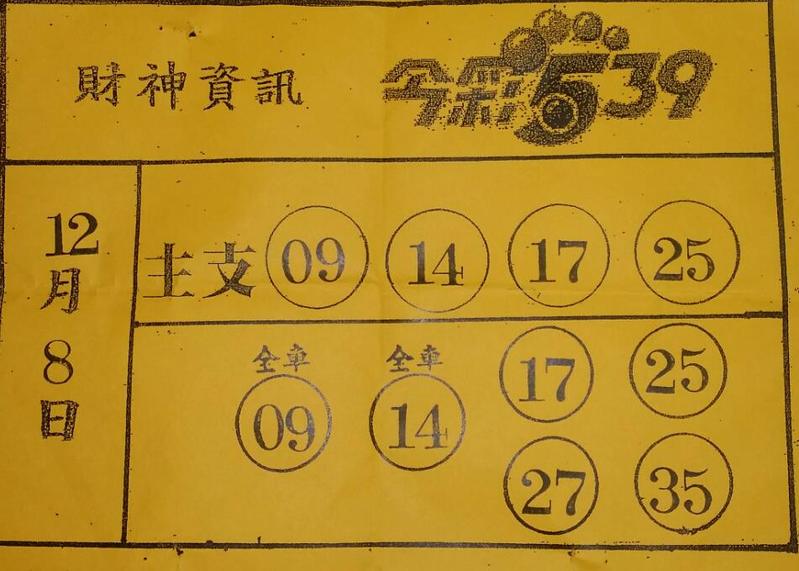 財神資訊 今彩539
12月8日
主支 09 14 17 25
全車 全車
09 14 17 25
27 35